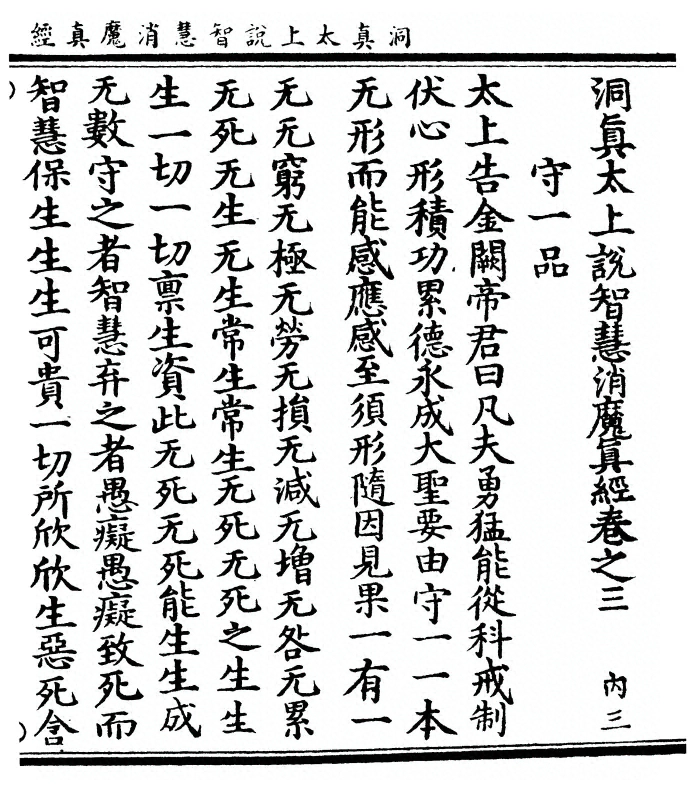 洞真太上說智慧消魔真經
洞真太上說智慧消魔真經卷之三 內三
守一品
太上告金闕帝君曰凡夫勇猛能從科戒制
伏心形積功累德永成大聖要由守一一本
无形而能感應感至須形隨因見果一有一
无无窮无極无勞无損无減无增无咎无累
无死无生无生常生常生无死无死之生生
生一切一切禀生資此无死无死能生生成
无數守之者智慧弃之者愚癡愚癡致死而
智慧保生生生可貴一切所欣欣生惡死含